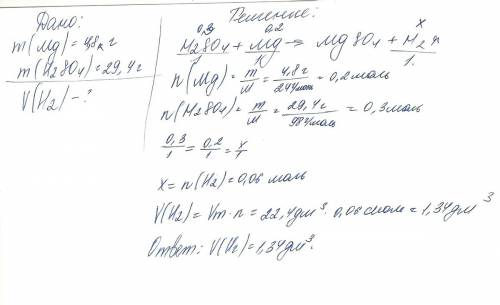 Дано:
m(Mg)=4,8г
m(H2SO4)=29,4г
V(H2)-?
Решение:
0,3 0,2 x
H2SO4+Mg→MgSO4+H2↑
1 1 1.
n(Mg)=m/M=4,8г/24г/моль=0,2моль
n(H2SO4)=m/M=29,4г/98г/моль=0,3моль
0,3/1=0,2/1=x/1
x=n(H2)=0,06 моль
V(H2)=Vm·n=22,4дм³·0,06моль=1,34дм³
Ответ: V(H2)=1,34дм³.